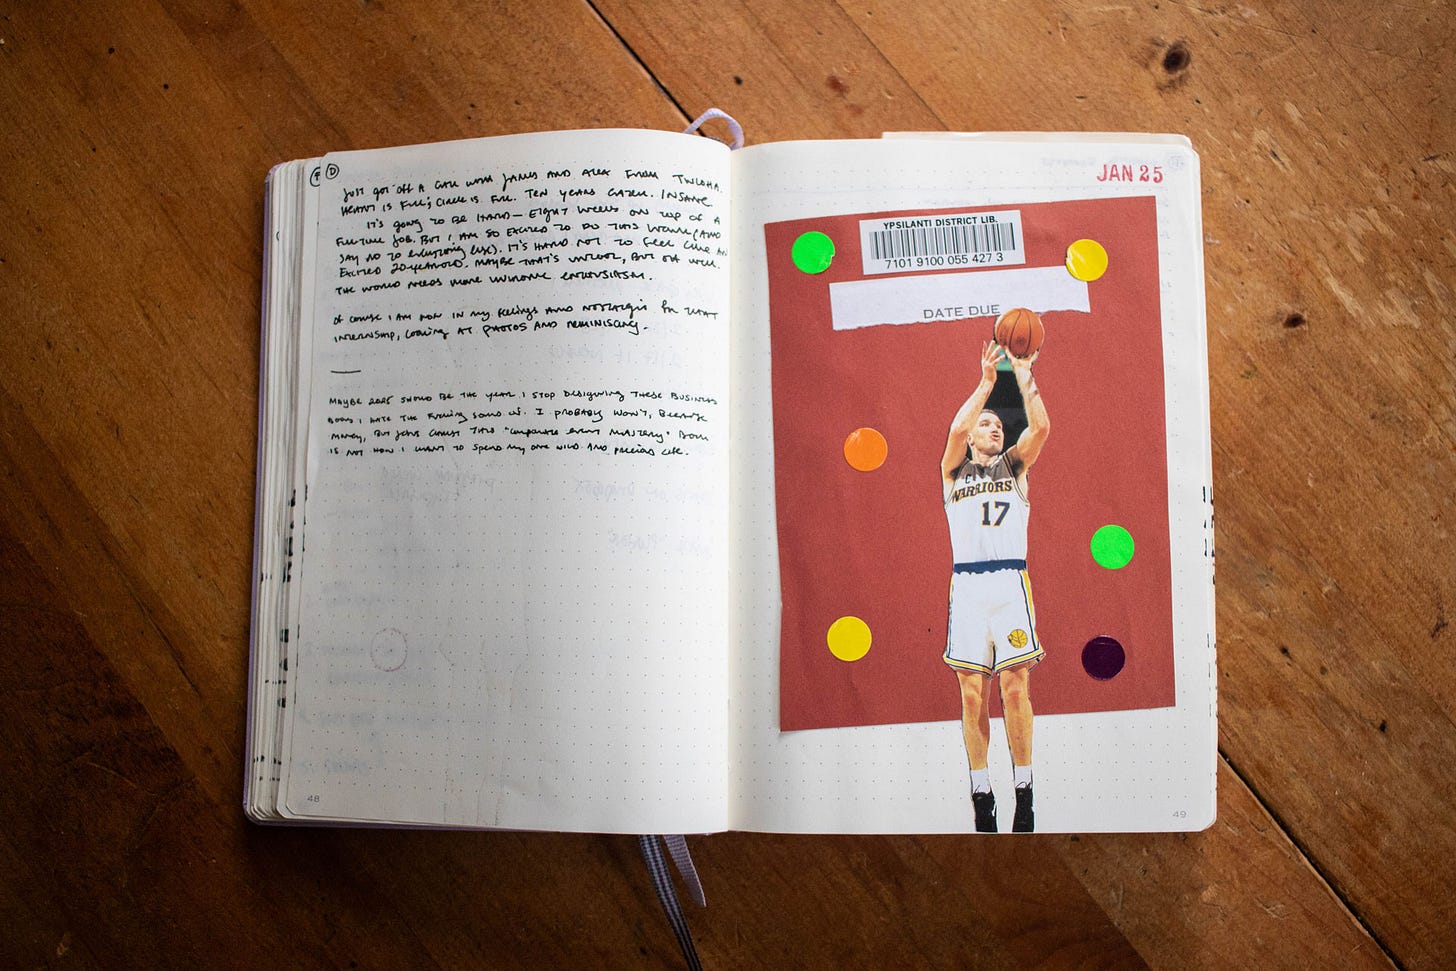 D
Just got off a call with James and Alex from TWLOHA.
Heart is full; circle is full. Ten years later. Insane.
It's going to be hard — eight weeks on top of a
full time job. But I am so excited to do this work (and
say no to everything else). It's hard not to feel like an
excited 20 year old. Maybe that's uncool, but oh well.
The world needs more uncool enthusiasm.
Of course I am now in my feelings and nostalgic for that
internship, looking at photos and reminiscing.
Maybe 2025 should be the year I stop designing these business
books I hate the fucking sound of. I probably won't, because
money, but Jesus Christ this "corporate event mastery" book
is not how I want to spend my one wild and precious life.
48
JAN 25
YPSILANTI DISTRICT LIB.
7101 9100 055 427 3
DATE DUE
WARRIORS
17
49